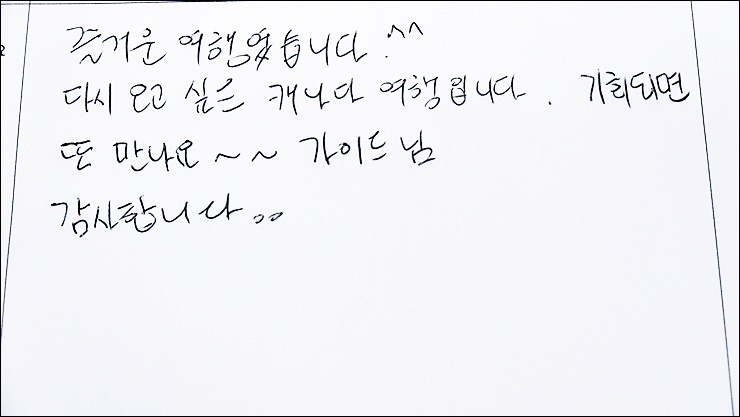 즐거운 여행였습니다.^^
다시 오고 싶은 캐나다 여행입니다. 기회되면
또 만나요~~ 가이드님
감사합니다..